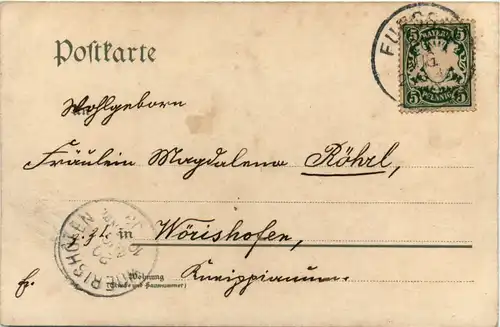 Postkarte
BAYERN
5 5
5 PFENNIG 5
Wohlgeborn
Fräulein Magdalena Röhrl,
z. Zt. in Wörishofen,
WOERISHOFEN
Wohnung
(Straße und Hausnummer)
Kneippianum.
fr.